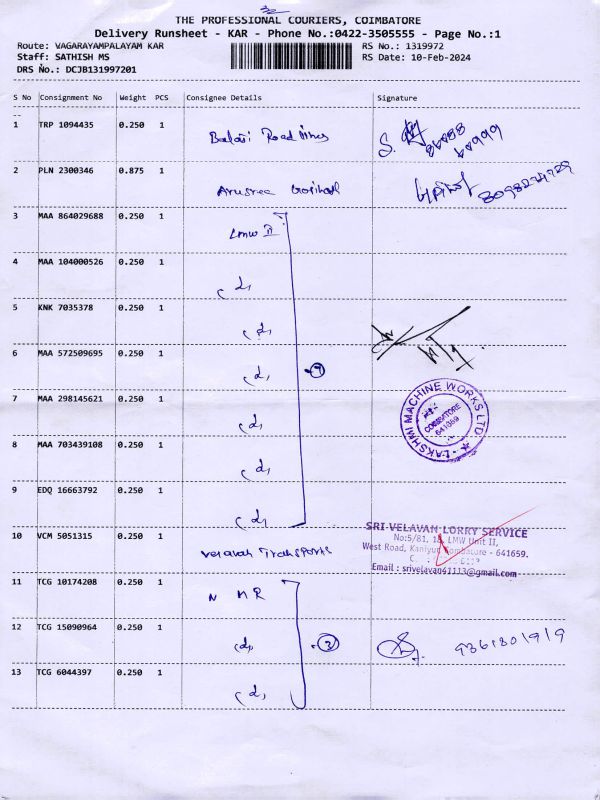 THE PROFESSIONAL COURIERS, COIMBATORE
Delivery Runsheet - KAR - Phone No.:0422-3505555 - Page No.:1
Route: VAGARAYAMPALAYAM KAR RS No.: 1319972
Staff: SATHISH MS RS Date: 10-Feb-2024
DRS No.: DCJB131997201
S No Consignment No Weight PCS Consignee Details Signature
1 TRP 1094435 0.250 1
2 PLN 2300346 0.875 1
3 MAA 864029688 0.250 1 LMW II
4 MAA 104000526 0.250 1
5 KNK 7035378 0.250 1
6 MAA 572509695 0.250 1
7 MAA 298145621 0.250 1
LAKSHMI MACHINE WORKS LTD
COIMBATORE
641069
8 MAA 703439108 0.250 1
9 EDQ 16663792 0.250 1
10 VCM 5051315 0.250 1 Velavan Transports
SRI VELAVAN LORRY SERVICE
No:5/81, LMW Unit II,
West Road, Kaniyur, Coimbatore - 641659.
Email : srivelavan41113@gmail.com
11 TCG 10174208 0.250 1 N M R
12 TCG 15090964 0.250 1 9361801919
13 TCG 6044397 0.250 1